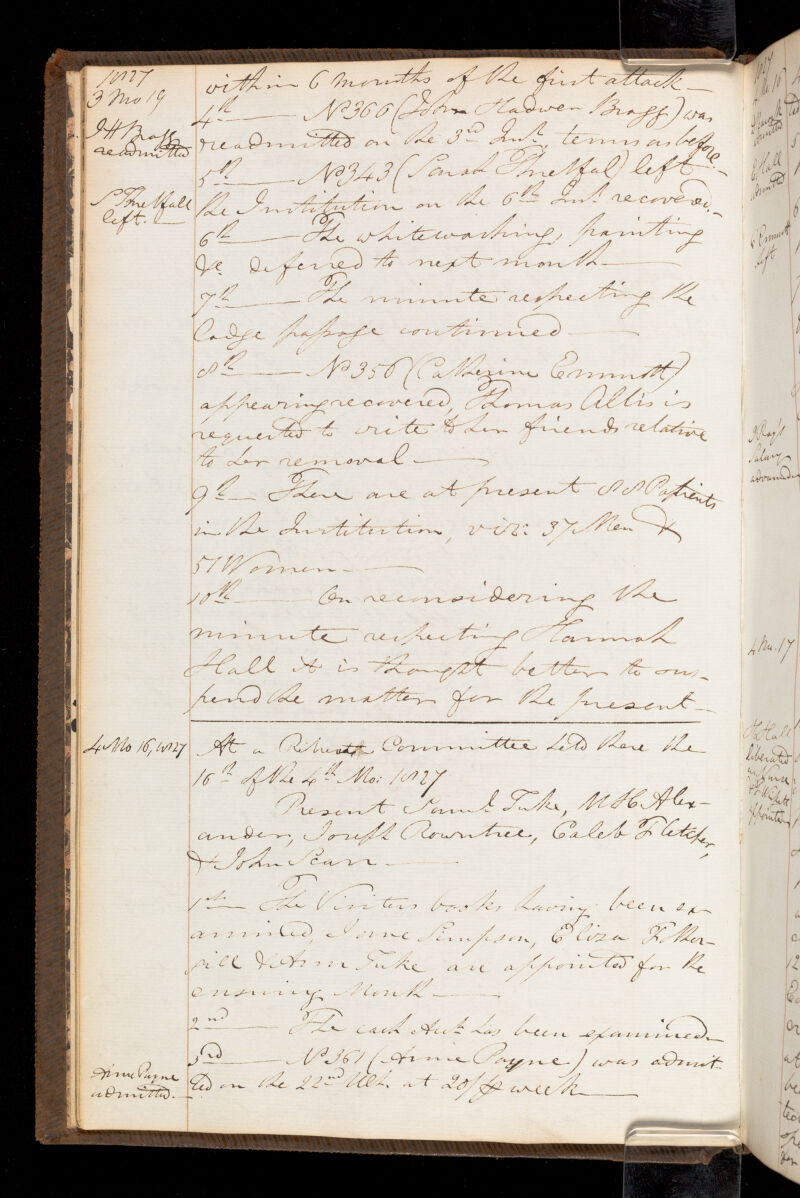 1827
3 Mo 19
within 6 months of the first attack —
4th — No 366 (John Hadwen Bragg) was
J H Bragg
readmitted
readmitted on the 3rd Inst. terms as before. —
5th — No 343 (Sarah Threlfal) left
S Threlfall
left. —
the Institution on the 6th Inst. recovered. —
6th — The whitewashing, painting
&c. deferred to next month —
7th — The minute respecting the
Lodge passage continued —
8th — No 356 (Catherine Emmott)
appearing recovered, Thomas Allis is
requested to write to her friends relative
to her removal —
9th — There are at present 88 Patients
in the Institution, viz: 37 Men &
51 Women —
10th — On reconsidering the
minute respecting Hannah
Hall it is thought better to sus-
pend the matter for the present —
4 Mo 16, 1827
At a Committee held here the
16th of the 4th Mo: 1827
Present Saml. Tuke, W H Alex-
ander, Joseph Rowntree, Caleb Fletcher,
& John Scarr —
1st — The Visitors books having been ex-
amined, Jane Simpson, Eliza Fother-
gill & Ann Tuke are appointed for the
ensuing Month —
2nd — The cash Acct. has been examined —
3rd — No 361 (Anne Payne) was admit-
Anne Payne
admitted. —
ted on the 22nd Ult. at 20/ ⅌ week —
4 Mo. 17
H Hall
liberated